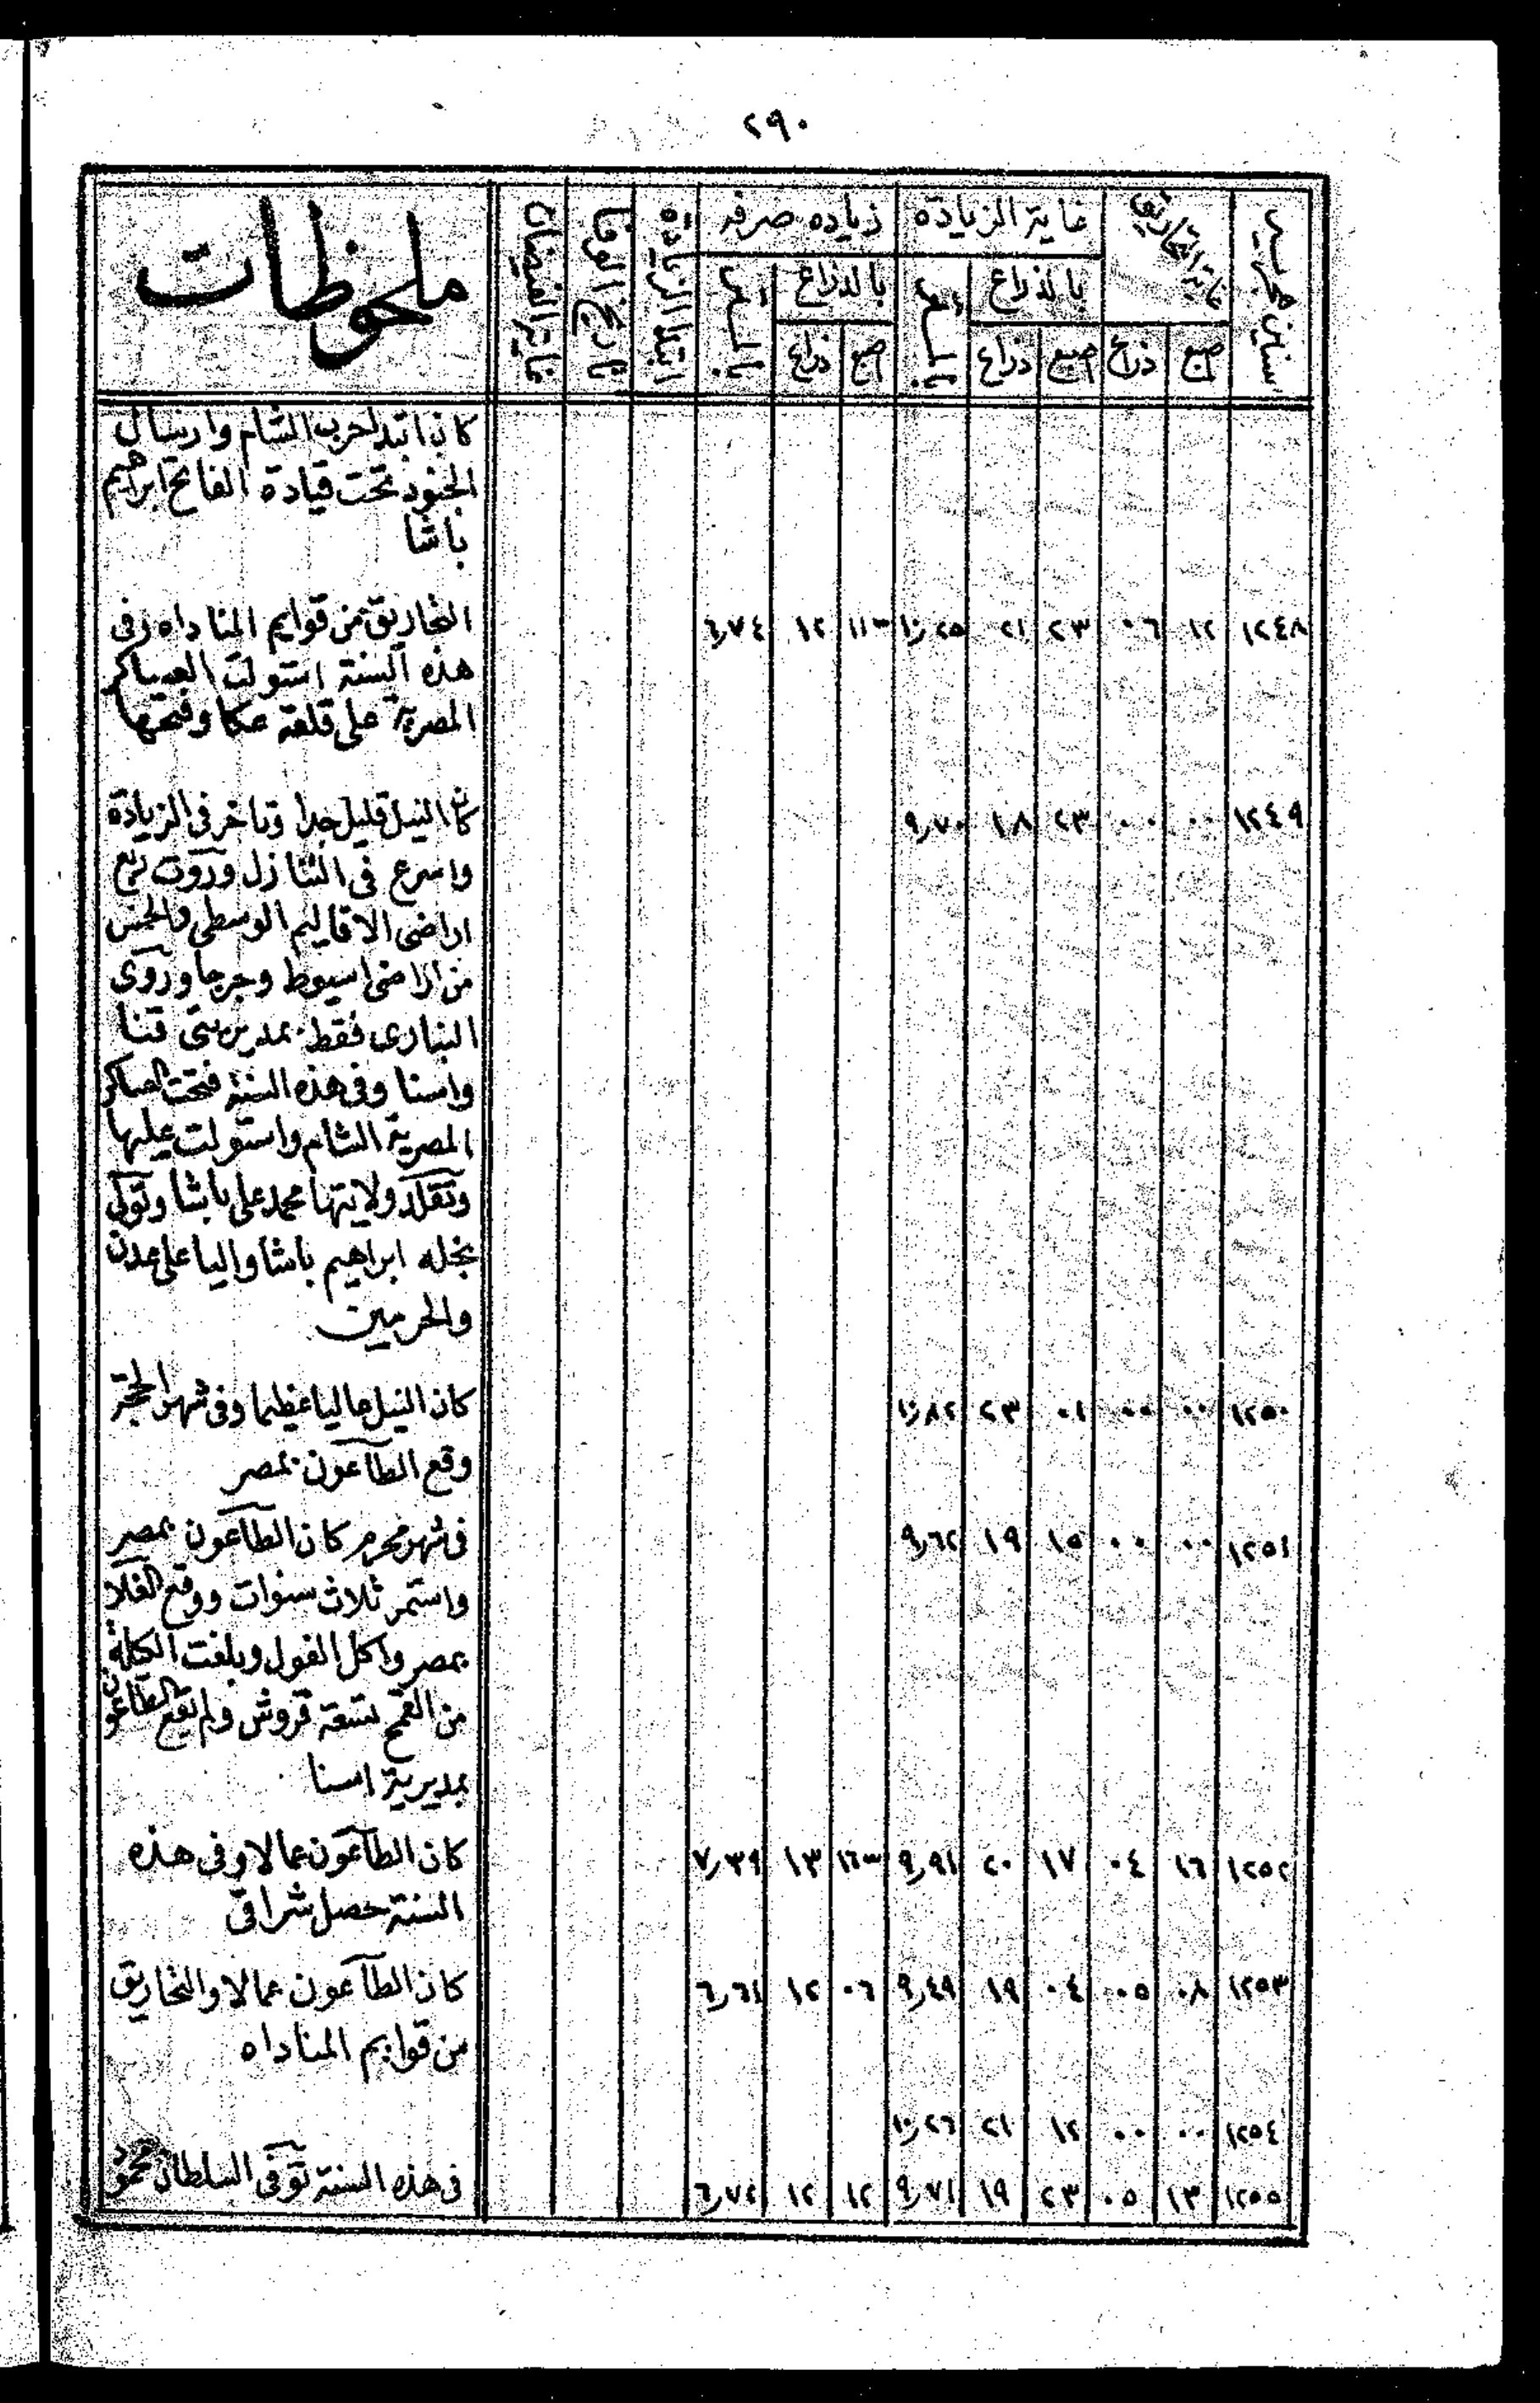 ٢٩٠
سنين هجرية
غاية التحاريق
غاية الزيادة
زياده صرفه
ابتدا الزيادة
تاريخ الوفا
غاية الفيضان
ملحوظات
بالذراع
بالمتر
بالذراع
بالمتر
اصبع
ذراع
اصبع
ذراع
اصبع
ذراع
كان ابتدا حرب الشام وارسال
الجنود تحت قيادة الفاتح ابراهيم
باشا
١٢٤٨ ١٢ ٠٦ ٢٣ ٢١ ١٠٫٢٥ ١١٣ ١٢ ٦٫٧٤ التحاريق من قوايم المناداه وفى
هذه السنة استولت العساكر
المصرية على قلعة عكا وفتحها
١٢٤٩ ٠٠ ٠٠ ٢٣ ١٨ ٩٫٧٠ كان النيل قليل جدا وتاخر فى الزيادة
واسرع فى التنازل وروت ربع
اراضى الاقاليم الوسطى والخمس
من اراضى اسيوط وجرجا وروى
البنارى فقط بمديريتى قنا
واسنا وفى هذه السنة فتحت العساكر
المصرية الشام واستولت عليها
وتقلد ولايتها محمد على باشا وتولى
نجله ابراهيم باشا واليا على عدن
والحرمين
١٢٥٠ ٠٠ ٠٠ ٠١ ٢٣ ١٠٫٨٢ كان النيل عاليا عظيما وفى شهر الحجة
وقع الطاعون بمصر
١٢٥١ ٠٠ ٠٠ ١٥ ١٩ ٩٫٦٢ فى شهر محرم كان الطاعون بمصر
واستمر ثلاث سنوات ووقع الغلا
بمصر واكل الفول وبلغت الكيلة
من القمح تسعة قروش ولم يقع الطاعون
بمديرية اسنا
١٢٥٢ ١٦ ٠٤ ١٧ ٢٠ ٩٫٩١ ١٦٣ ١٣ ٧٫٣٩ كان الطاعون عمالا وفى هذه
السنة حصل شراقى
١٢٥٣ ٠٨ ٠٥ ٠٤ ١٩ ٩٫٤٩ ٠٦ ١٢ ٦٫٦١ كان الطاعون عمالا والتحاريق
من قوايم المناداه
١٢٥٤ ٠٠ ٠٠ ١٢ ٢١ ١٠٫٢٦
١٢٥٥ ١٣ ٠٥ ٢٣ ١٩ ٩٫٧١ ١٢ ١٢ ٦٫٧٤ فى هذه السنة توفى السلطان محمود